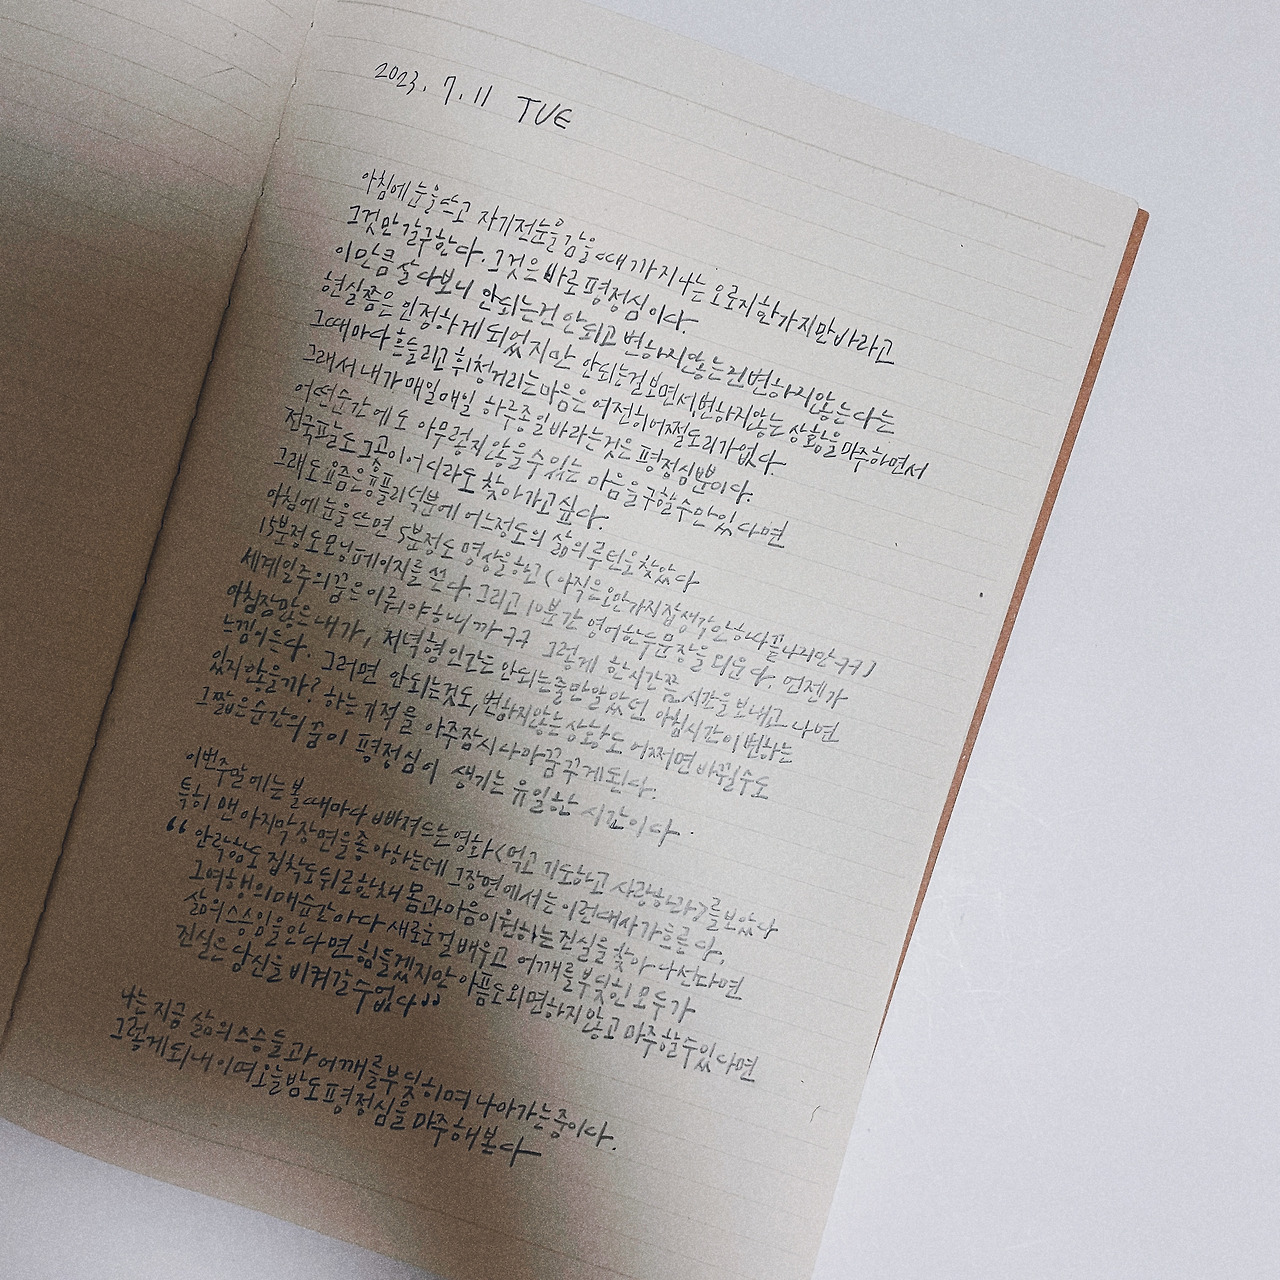 2023. 7. 11 TUE
아침에 눈을 뜨고 자기전 눈을 감을때까지 나는 오로지 한가지만 바라고
그것만 갈구한다. 그것은 바로 평정심이다.
이만큼 살다보니 안되는건 안되고 변하지않는건 변하지않는다는
현실쯤은 인정하게 되었지만 안되는걸 보면서, 변하지않는 상황을 마주하면서
그때마다 흔들리고 휘청거리는 마음은 여전히 어쩔도리가 없다.
그래서 내가 매일매일 하루종일 바라는것은 평정심뿐이다.
어떤순간에도 아무렇지않을 수 있는 마음을 구할수만 있다면
전국팔도 그곳이 어디라도 찾아가고 싶다.
그래도 요즘은 덕분에 어느정도의 삶의 루틴을 찾았다
아침에 눈을 뜨면 5분정도 명상을 하고 (아직은 오만가지 잡생각만 하다 끝나지만ㅋㅋ)
15분정도 모닝페이지를 쓴다. 그리고 10분간 영어 한두문장을 외운다. 언젠가
세계일주의 꿈은 이뤄야하니까ㅋㅋ 그렇게 한시간쯤 시간을 보내고 나면
아침잠 많은 내가, 저녁형 인간은 안되는줄만 알았던 아침시간이 변하는
느낌이 든다. 그러면 안되는것도, 변하지않는 상황도 어쩌면 바뀔수도
있지않을까? 하는 기적을 아주 잠시나마 꿈꾸게된다.
그 짧은순간의 꿈이 평정심이 생기는 유일한 시간이다.
이번주말에는 볼때마다 빠져드는 영화 <먹고 기도하고 사랑하라>를 보았다
특히 맨 마지막 장면을 좋아하는데 그장면에서는 이런대사가 흐른다,
“안락함도 집착도 뒤로한채 몸과 마음이 원하는 진실을 찾아 나선다면
그 여행의 매순간마다 새로운걸 배우고 어깨를 부딪힌 모두가
삶의 스승임을 안다면 힘들겠지만 아픔도 외면하지 않고 마주할 수 있다면
진실은 당신을 비켜갈 수 없다”
나는 지금 삶의 스승들과 어깨를 부딪히며 나아가는 중이다.
그렇게 되내이며 오늘밤도 평정심을 마주해본다